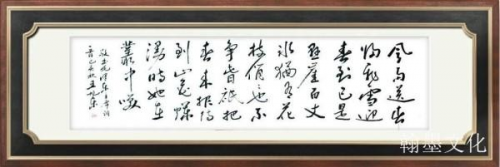 風雨送春
歸飛雪迎
春到已是
悬崖百丈
冰猶有花
枝俏也不
争春祇把
春来报待
到山花爛
漫時她在
叢中笑
翰墨文化